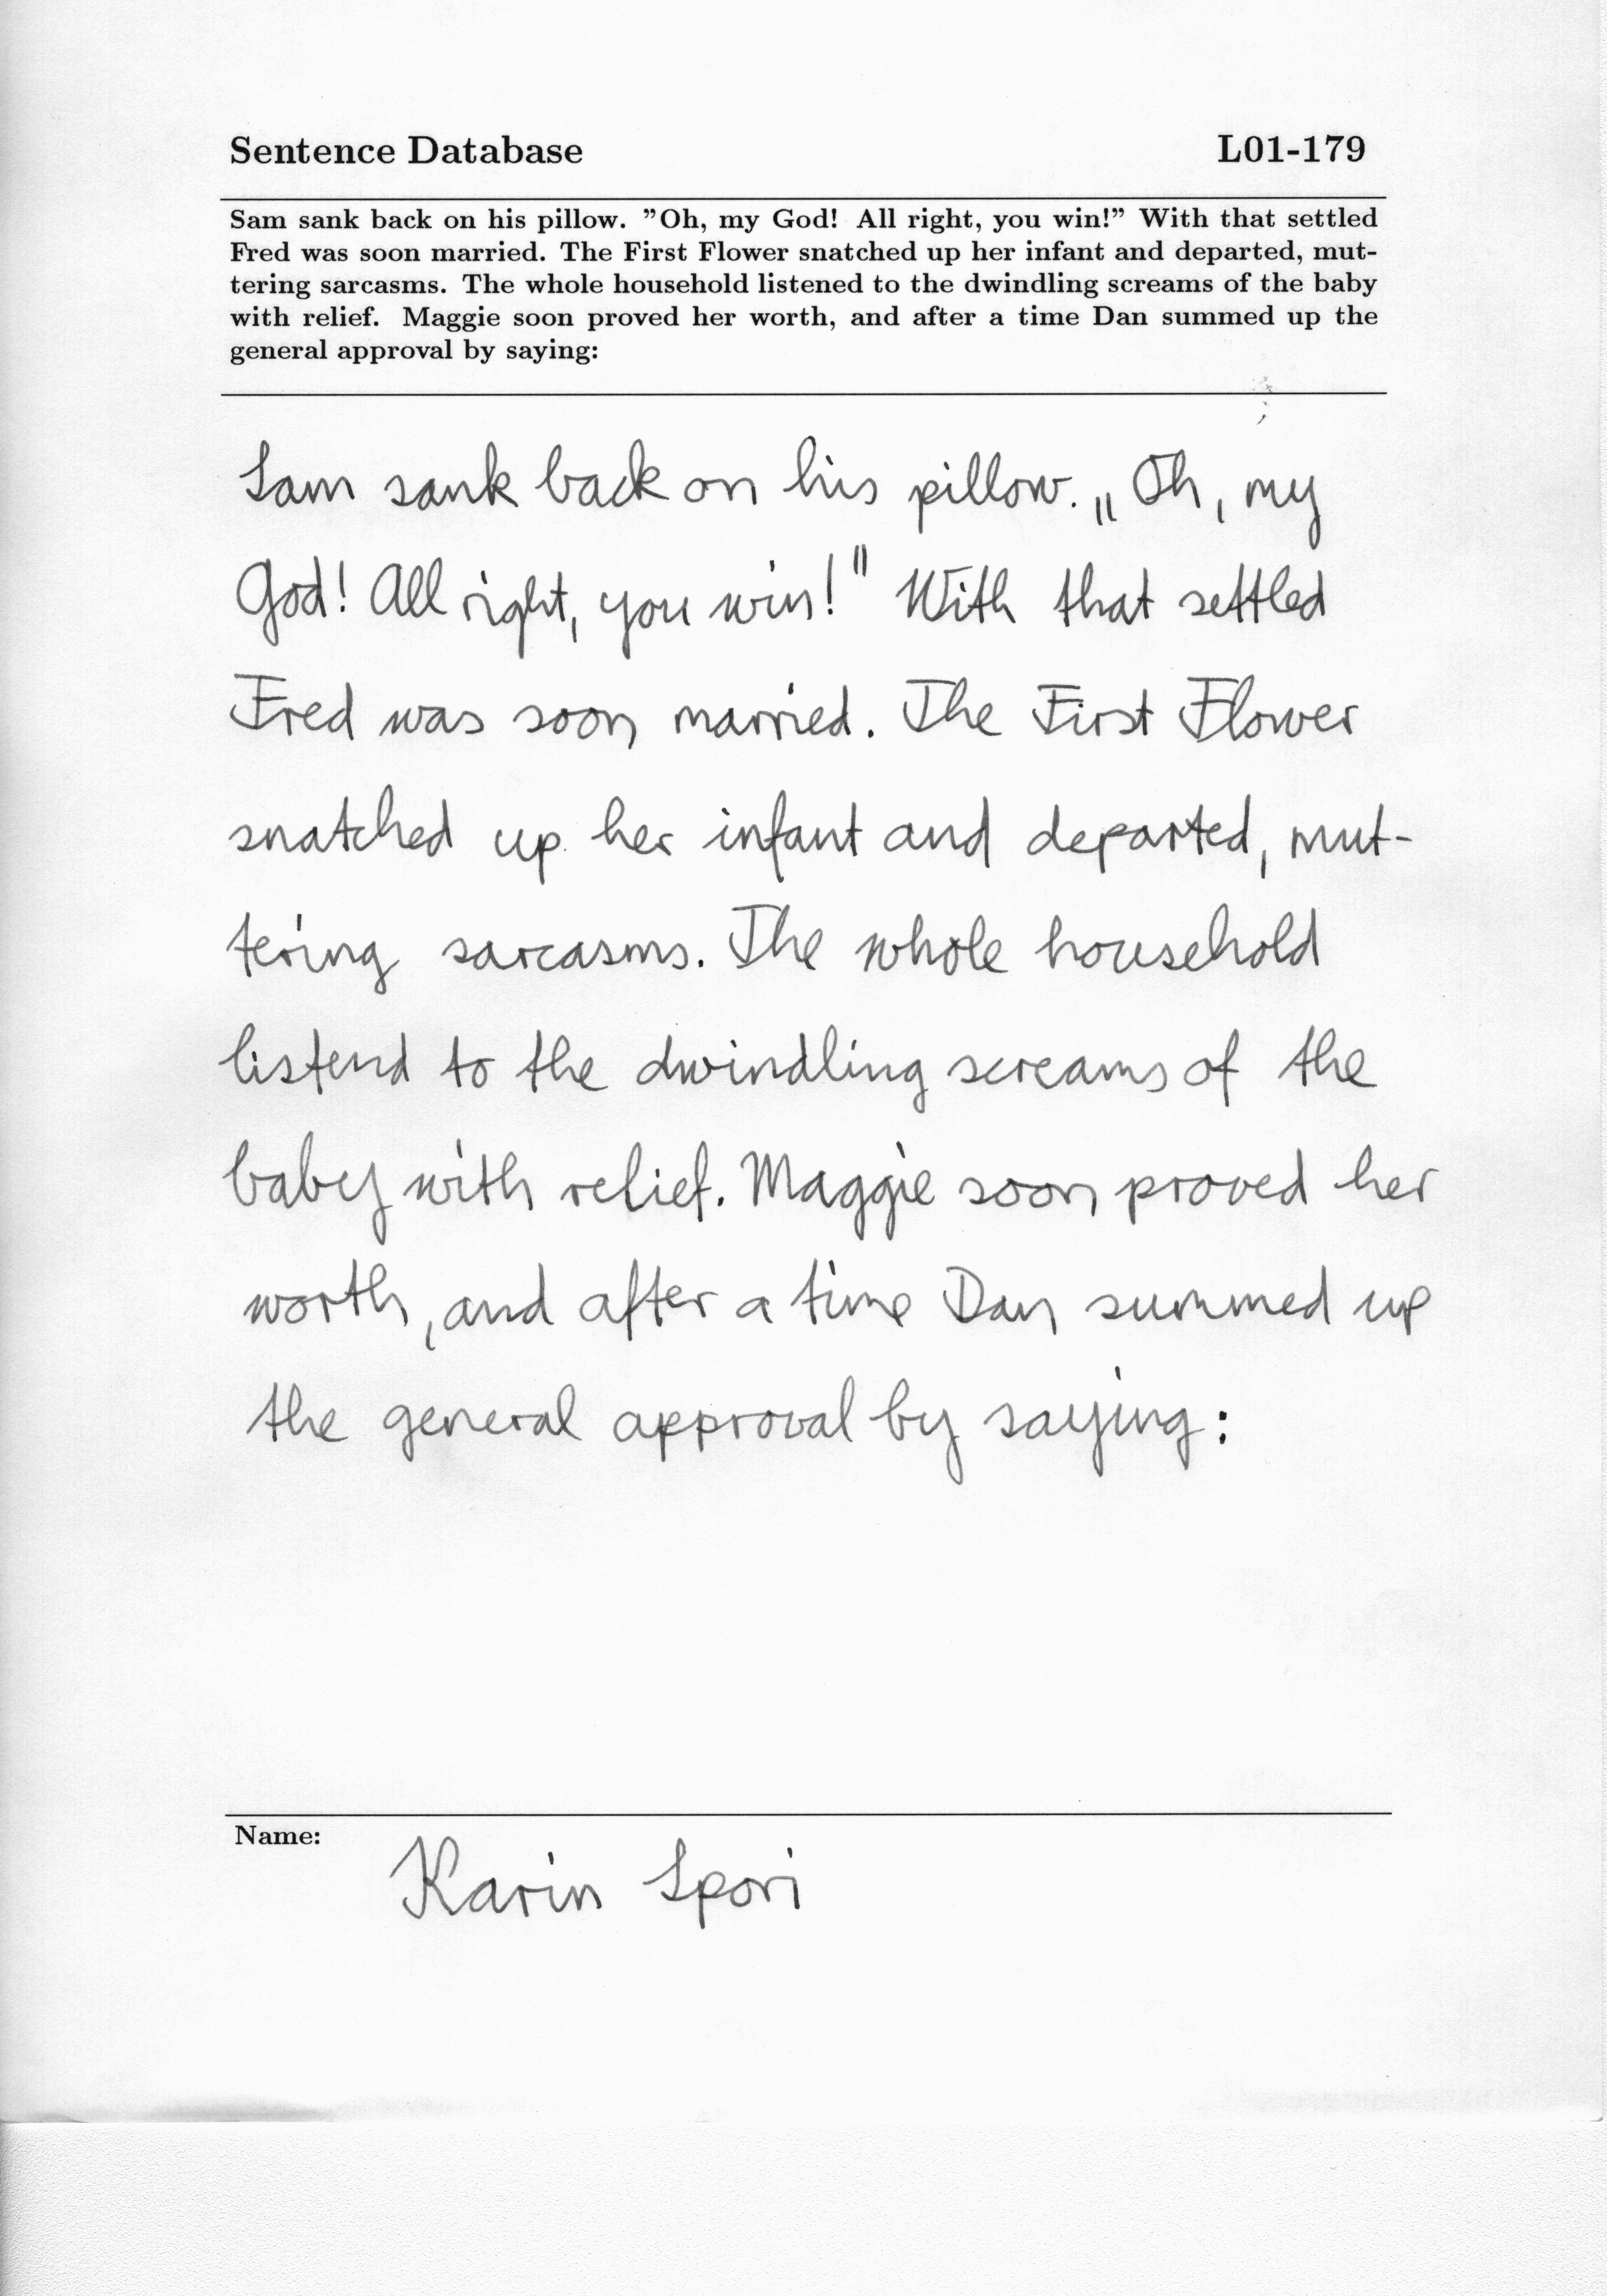 Sentence Database L01-179
Sam sank back on his pillow. ”Oh, my God! All right, you win!” With that settled
Fred was soon married. The First Flower snatched up her infant and departed, mut-
tering sarcasms. The whole household listened to the dwindling screams of the baby
with relief. Maggie soon proved her worth, and after a time Dan summed up the
general approval by saying:
Sam sank back on his pillow. „Oh, my
God! All right, you win!" With that settled
Fred was soon married. The First Flower
snatched up her infant and departed, mut-
tering sarcasms. The whole household
listend to the dwindling screams of the
baby with relief. Maggie soon proved her
worth, and after a time Dan summed up
the general approval by saying:
Name:
Karin Spori